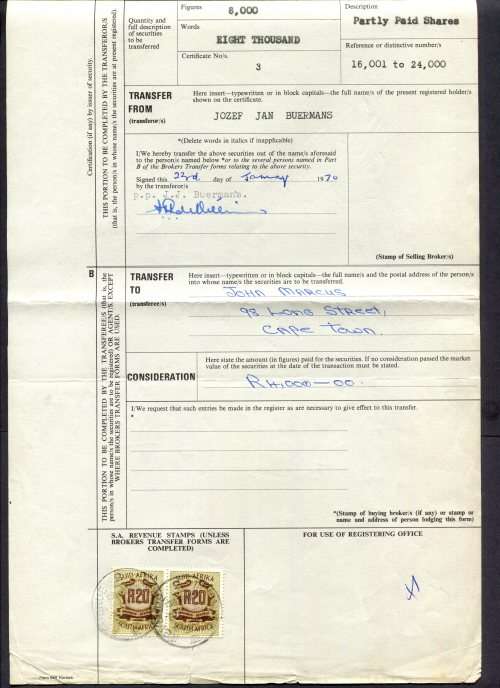 Figures
8,000
Description
Partly Paid Shares
Quantity and
full description
of securities
to be
transferred
Words
EIGHT THOUSAND
Reference or distinctive number/s
Certificate No/s.
3
16,001 to 24,000
Certification (if any) by issuer of security.
THIS PORTION TO BE COMPLETED BY THE TRANSFEROR/S
(that is, the person/s in whose name/s the securities are at present registered).
TRANSFER
FROM
(transferor/s)
Here insert—typewritten or in block capitals—the full name/s of the present registered holder/s
shown on the certificate.
JOZEF JAN BUERMANS
*(Delete words in italics if inapplicable)
I/We hereby transfer the above securities out of the name/s aforesaid
to the person/s named below *or to the several persons named in Part
B of the Brokers Transfer forms relating to the above security.
Signed this 23rd day of January 1970
by the transferor/s
p.p. J.J. Buerman's.
(Stamp of Selling Broker/s)
B
THIS PORTION TO BE COMPLETED BY THE TRANSFEREE/S (that is, the
person/s in whose name/s the securities are to be registered) OR AGENT/S, EXCEPT
WHERE BROKERS TRANSFER FORMS ARE USED.
TRANSFER
TO
(transferee/s)
Here insert—typewritten or in block capitals—the full name/s and the postal address of the person/s
into whose name/s the securities are to be transferred.
JOHN MARCUS
98 LONG STREET,
CAPE TOWN.
CONSIDERATION
Here state the amount (in figures) paid for the securities. If no consideration passed the market
value of the securities at the date of the transaction must be stated.
R4,000—00.
I/We request that such entries be made in the register as are necessary to give effect to this transfer.
*
*(Stamp of buying broker/s (if any) or stamp or
name and address of person lodging this form)
S.A. REVENUE STAMPS (UNLESS
BROKERS TRANSFER FORMS ARE
COMPLETED)
FOR USE OF REGISTERING OFFICE
SUID-AFRIKA SUID-AFRIKA
R20 R20
SOUTH AFRICA SOUTH AFRICA